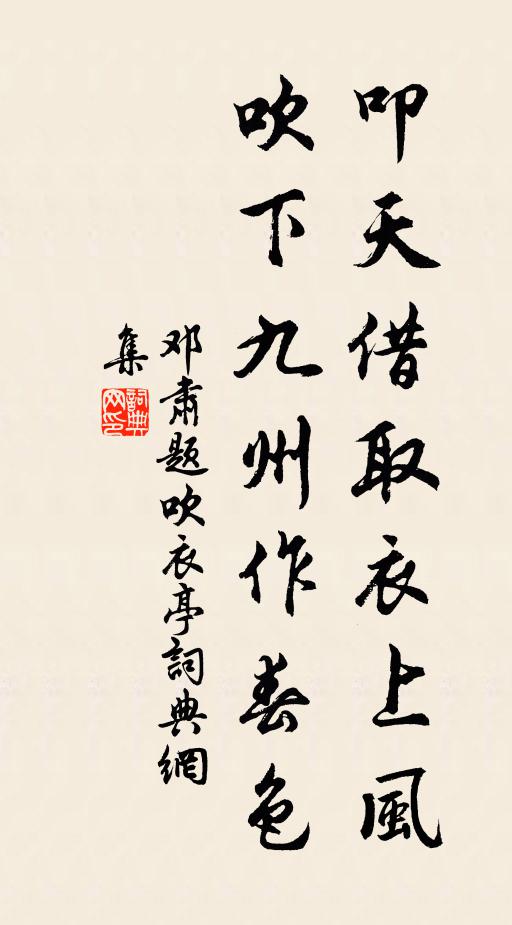 叩天借取衣上風
吹下九州作春色
邓肅题吹衣亭詞典網
集
詞典
网印